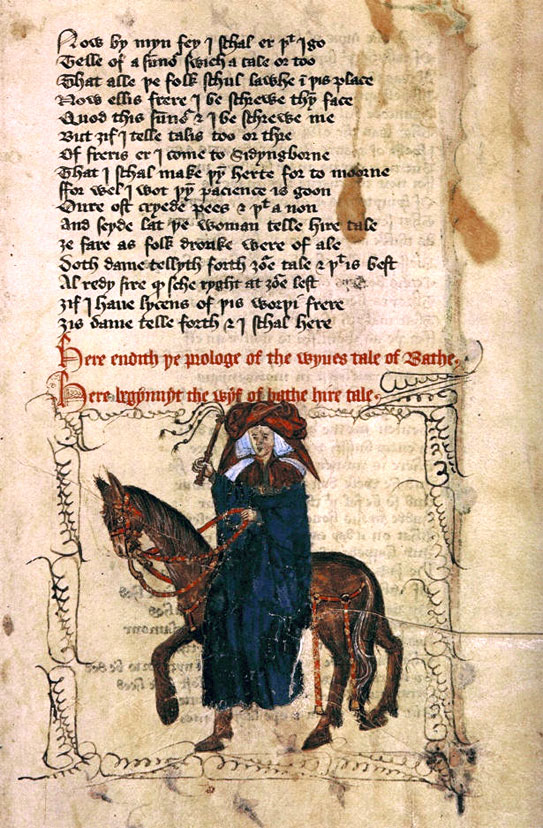 Now by myn fey I schal er þt I go
Telle of a sumno swich a tale or too
That alle þe folk schul lawhe ī þis place
Now ellis frere I be schrewe thy face
Quod this sumno & I be schrewe me
But ȝif I telle talis too or thre
Of freris er I come to Sidyngborne
That I schal make þy herte for to moorne
Ffor wel I wot þy pacience is goon
Oure ost cryede pees & þt a non
And seyde lat þe woman telle hire tale
ȝe fare as folk dronke were of ale
Doth dame tellyth forth ȝoē tale & þt is best
Al redy sire qd sche ryght as ȝoē lest
ȝif I haue lycens of þis worþi frere
ȝis dame telle forth & I schal here
Here endith þe prologe of the wyues tale of Bathe.
Here begynnyþ the wyf of bathe hire tale.